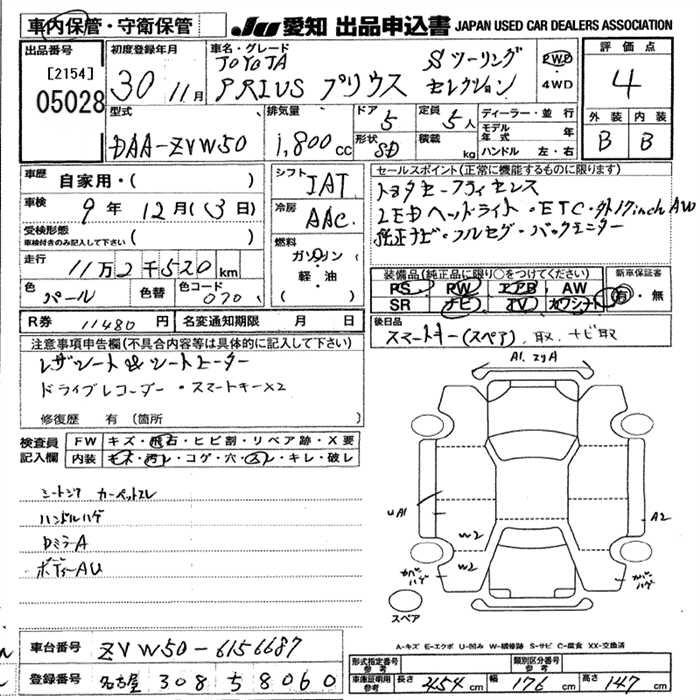 車内保管・守衛保管 JU 愛知 出品申込書 JAPAN USED CAR DEALERS ASSOCIATION
出品番号 初度登録年月 車名・グレード 評価点
[2154] 30 11月 TOYOTA Sツーリング 2WD
05028 PRIUS プリウス セレクション 4WD 4
型式 排気量 ドア 定員 ディーラー・並行 外装 内装
DAA-ZVW50 1,800cc 5 5人 モデル年式 年 B B
形状 SD 積載 kg ハンドル 左・右
車歴 自家用・( ) シフト IAT セールスポイント(正常に機能するものに限ります)
車検 9年 12月(3日) 冷房 AAC
LEDヘッドライト・ETC・外17inchAW
受検形態 車検付きのみ記入して下さい ( ) 燃料 純正ナビ・フルセグ・バックモニター
走行 11万2千520km ガソリン・軽・油 ( ) 装備品(純正品に限り○をつけてください) 新車保証書
色 パール 色替 色コード 070 PS PW エアB AW 有・無
SR ナビ TV カワシート
R券 11480円 名変通知期限 月 日 後日品
注意事項申告欄(不具合内容等は具体的に記入して下さい) スマートキー(スペア)、取、ナビ取
レザーシート&シートヒーター
ドライブレコーダー・スマートキー×2
修復歴 有 (箇所
検査員記入欄 FW キズ・飛石・ヒビ割・リペア跡・X要
内装 キズ・汚レ・コゲ・穴・スレ・キレ・破レ
カーペットスレ
ハンドルハゲ
ミラーA
ボディーAU
A1
UA1
A2
W2
W2
スペア
A-キズ E-エクボ U-凹み W-補修跡 S-サビ C-腐食 XX-交換済
車台番号 ZVW50-6156687
形式指定番号 参考 類別区分番号 参考
登録番号 名古屋 308 58060
車庫証明用 参考 長さ 454cm 幅 176cm 高さ 147cm